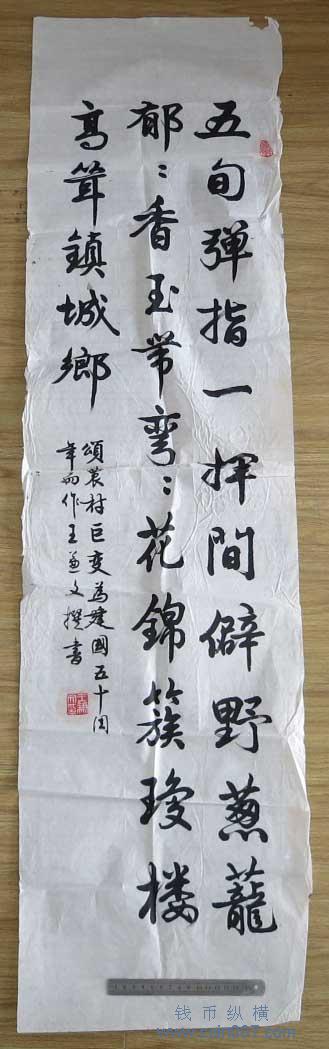 五旬弹指一挥間僻野葱蘢
郁〻香玉带弯〻花錦簇瓊楼
高聳鎮城鄉
頌農村巨变為建國五十周
年而作王孟文撰書
钱币纵横
www.coin007.com